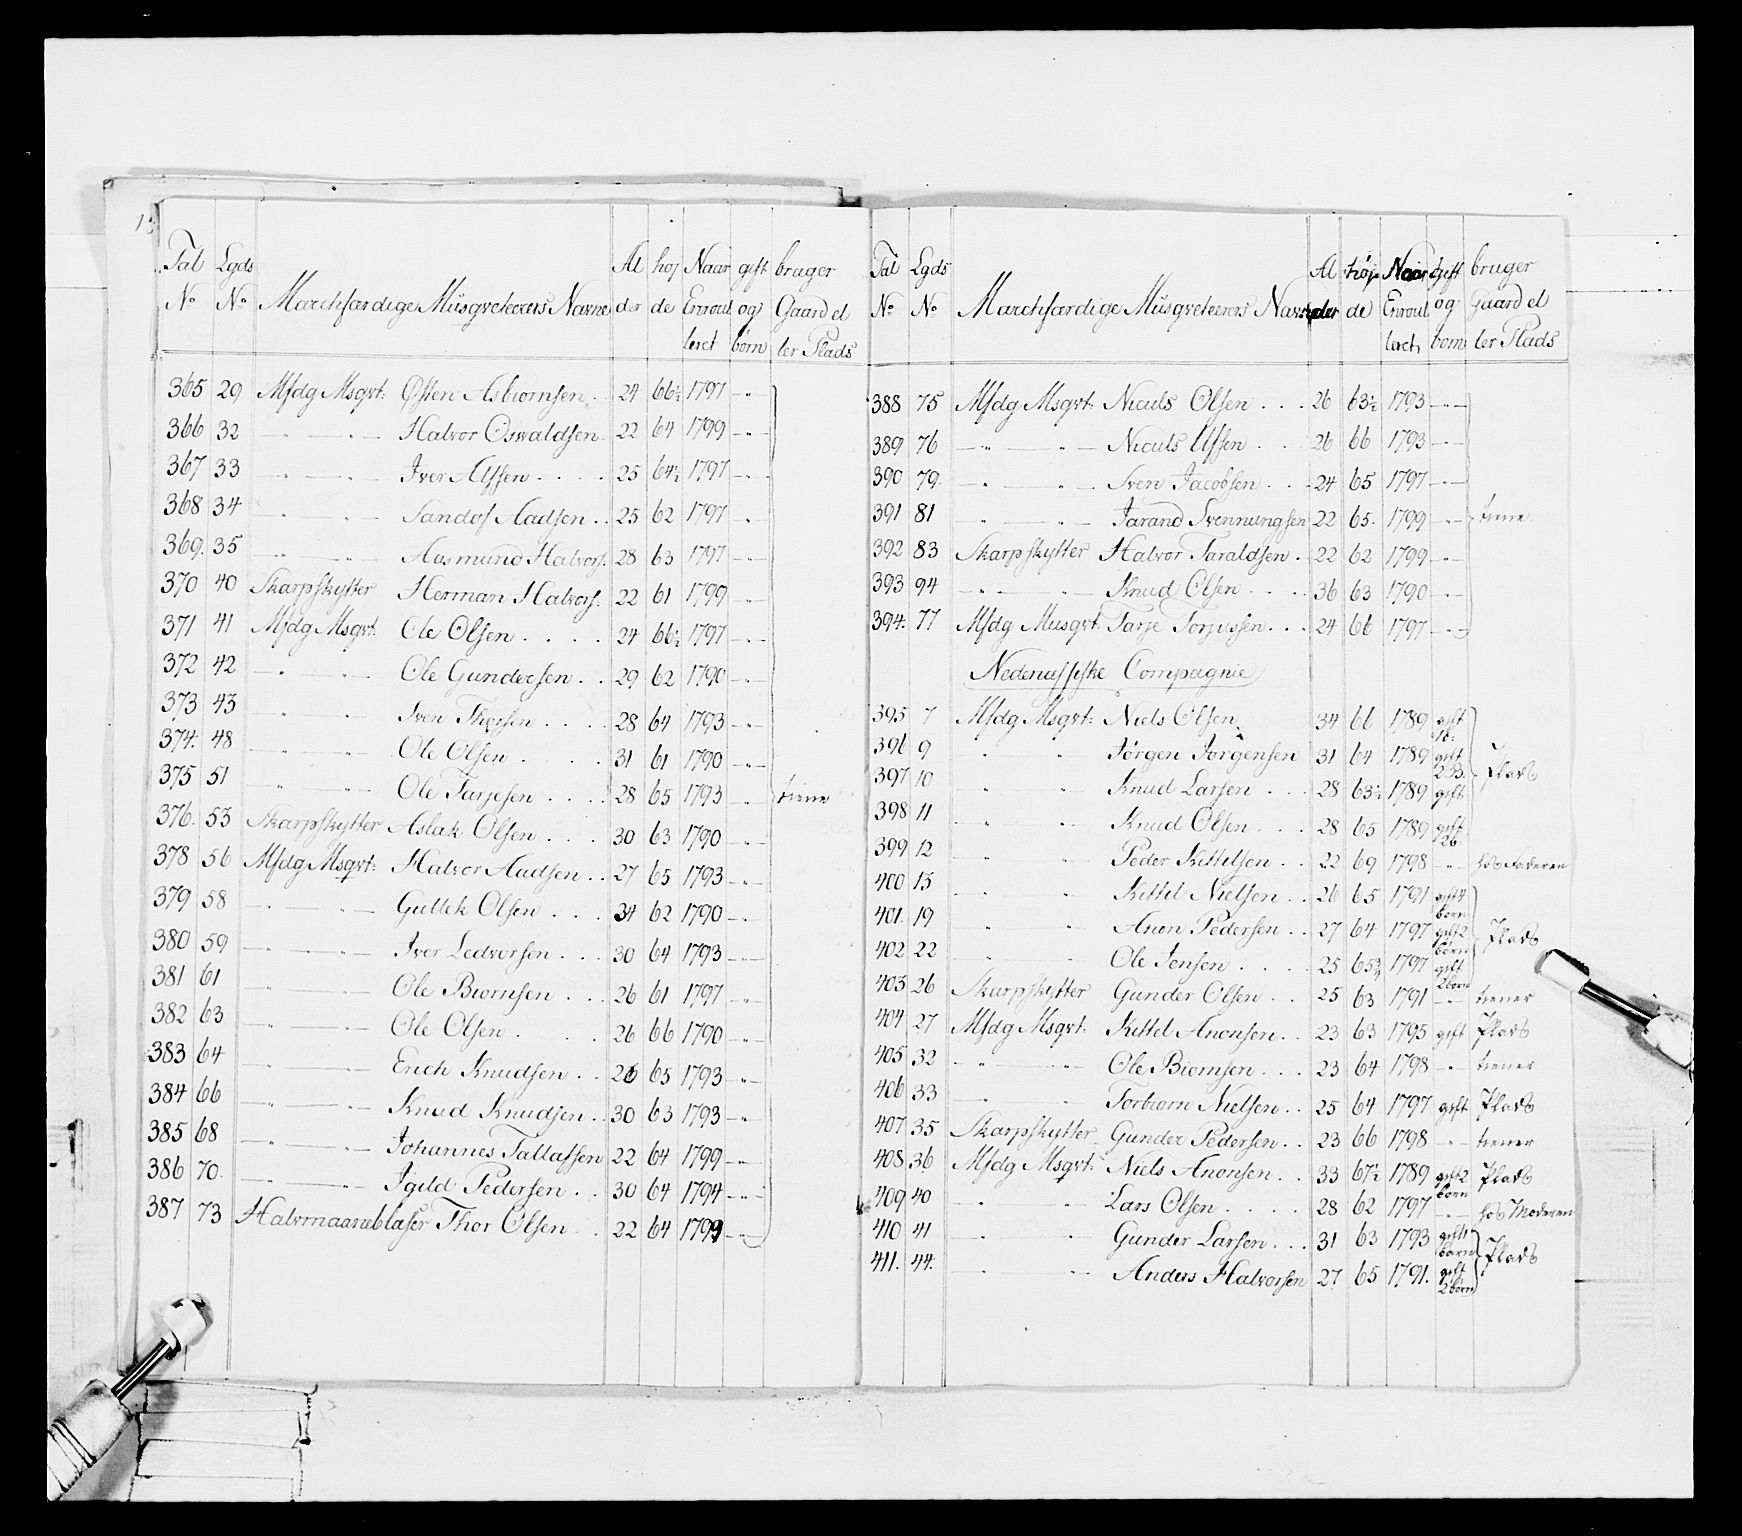 15
Tal Lgds Al høj Naar gift bruger
No No Marchfærdige Musqveteerers Navne der de Enroul og Gaard el
leret børn ler Plads
365 29 Mfdg Msqvt: Østen Asbiornsen . 24 66½ 1797 —"—
366 32 —"— —"— Halvor Oswaldsen 22 64 1799 —"—
367 33 —"— —"— Iver Alfsen . . . . 25 64½ 1797 —"—
368 34 —"— —"— Sandof Aadsen . . 25 62 1797 —"—
369. 35 —"— —"— Aasmund Halvors: 28 63 1797 —"—
370 40 Skarpskytter Herman Halvors: 22 61 1799 —"—
371 41 Mfdg Msqvt: Ole Olsen . . . . 24 66½ 1797 —"—
372 42 —"— —"— Ole Gundersen . . 29 62 1790 —"—
373 43 —"— —"— Sven Thorsen . . . . 28 64 1793 —"—
374. 48 —"— —"— Ole Olsen . . . . 31 61 1790 —"—
375 51 —"— —"— Ole Tarjesen . . . . 28 65 1793 —"— tiene
376. 53 Skarpskytter Aslak Olsen . . . . 30 63 1790 —"—
378 56 Mfdg Msqvt: Halvor Aadsen . . 27 65 1793 —"—
379 58 —"— —"— Gullek Olsen . . . . 34 62 1790 —"—
380 59 —"— —"— Iver Ledvorsen . . . 30 64 1793 —"—
381 61 —"— —"— Ole Biornsen . . . 26 61 1797 —"—
382 63 —"— —"— Ole Olsen . . . . 26 66 1790 —"—
383 64 —"— —"— Erich Knudsen . . 26 65 1793 —"—
384 66 —"— —"— Knud Knudsen . . 30 63 1793 —"—
385 68 —"— —"— Johannes Tallafsen 22 64 1799 —"—
386 70. —"— —"— Igild Pedersen . . 30 64 1794 —"—
387 73 Halvmaaneblaser Thor Olsen . . 22 64 1799 —"—
Tal Lgds Al høj Naar gift bruger
No No Marchfærdige Musqveteerers Navne der de Enroul og Gaard el
leret børn ler Plads
388 75 Mfdg Msqvt: Niculs Olsen . . . . 26 63½ 1793 —"—
389 76 —"— —"— Niculs Ulfsen . . . 26 66 1793 —"—
390 79. —"— —"— Sven Jacobsen . . . 24 65 1797 —"—
391 81 —"— —"— Jarand Svennungsen 22 65. 1799 —"— tiene
392 83 Skarpskytter Halvor Taraldsen . 22 62 1799 —"—
393 94 —"— —"— Knud Olsen . . . . 36 63 1790 —"—
394. 77 Mfdg Musqvt: Tarje Torjussen . . . 24 66 1797 —"—
Nedenæssiske Compagnie
395 7 Mfdg Msqvt: Niels Olsen 34 66 1789 gift 1b:
396 9 " " Jørgen Jørgensen 31 64 1789 gift Plads
397 10 " " Knud Larsen . . . 28 63½ 1789 gift
398 11 " " Knud Olsen . . . 28 65 1789 gift 2b
399 12 " " Peder Kittelsen . . 22 69 1798 —"— hos Faderen
400 13 —"— —"— Kittel Nielsen . . 26 65 1791 gift 4 børn
401. 19 —"— —"— Anon Pedersen . . 27 64 1797 gift 2 børn Plads
402 22 —"— —"— Ole Jensen . . . . 25 65¾ 1797 gift 2 børn
403 26 Skarpskytter Gunder Olsen . . 25 63 1791 —"— tiener
404 27 Mfdg Msqvt: Kittel Anonsen . . 23 63 1795 gift Plads
405 32 —"— —"— Ole Biornsen . . . 23 64 1798 —"— tiener
406 33 —"— —"— Torbiorn Nielsen . . 25 64 1797 gift Plads
407 35 Skarpskytter Gunder Pedersen . . 23 66 1798 —"— tiener
408 36 Mfdg Msqvt: Niels Anonsen . . 33 67½ 1789 gift 2 børn Plads
409 40 —"— —"— Lars Olsen . . . . 28 62 1797 —"— hos Moderen
410 41 —"— —"— Gunder Larsen . . . 31 63 1793 gift 1 barn Plads
411. 44. —"— —"— Anders Halvorsen 27 65 1791. gift 2 børn